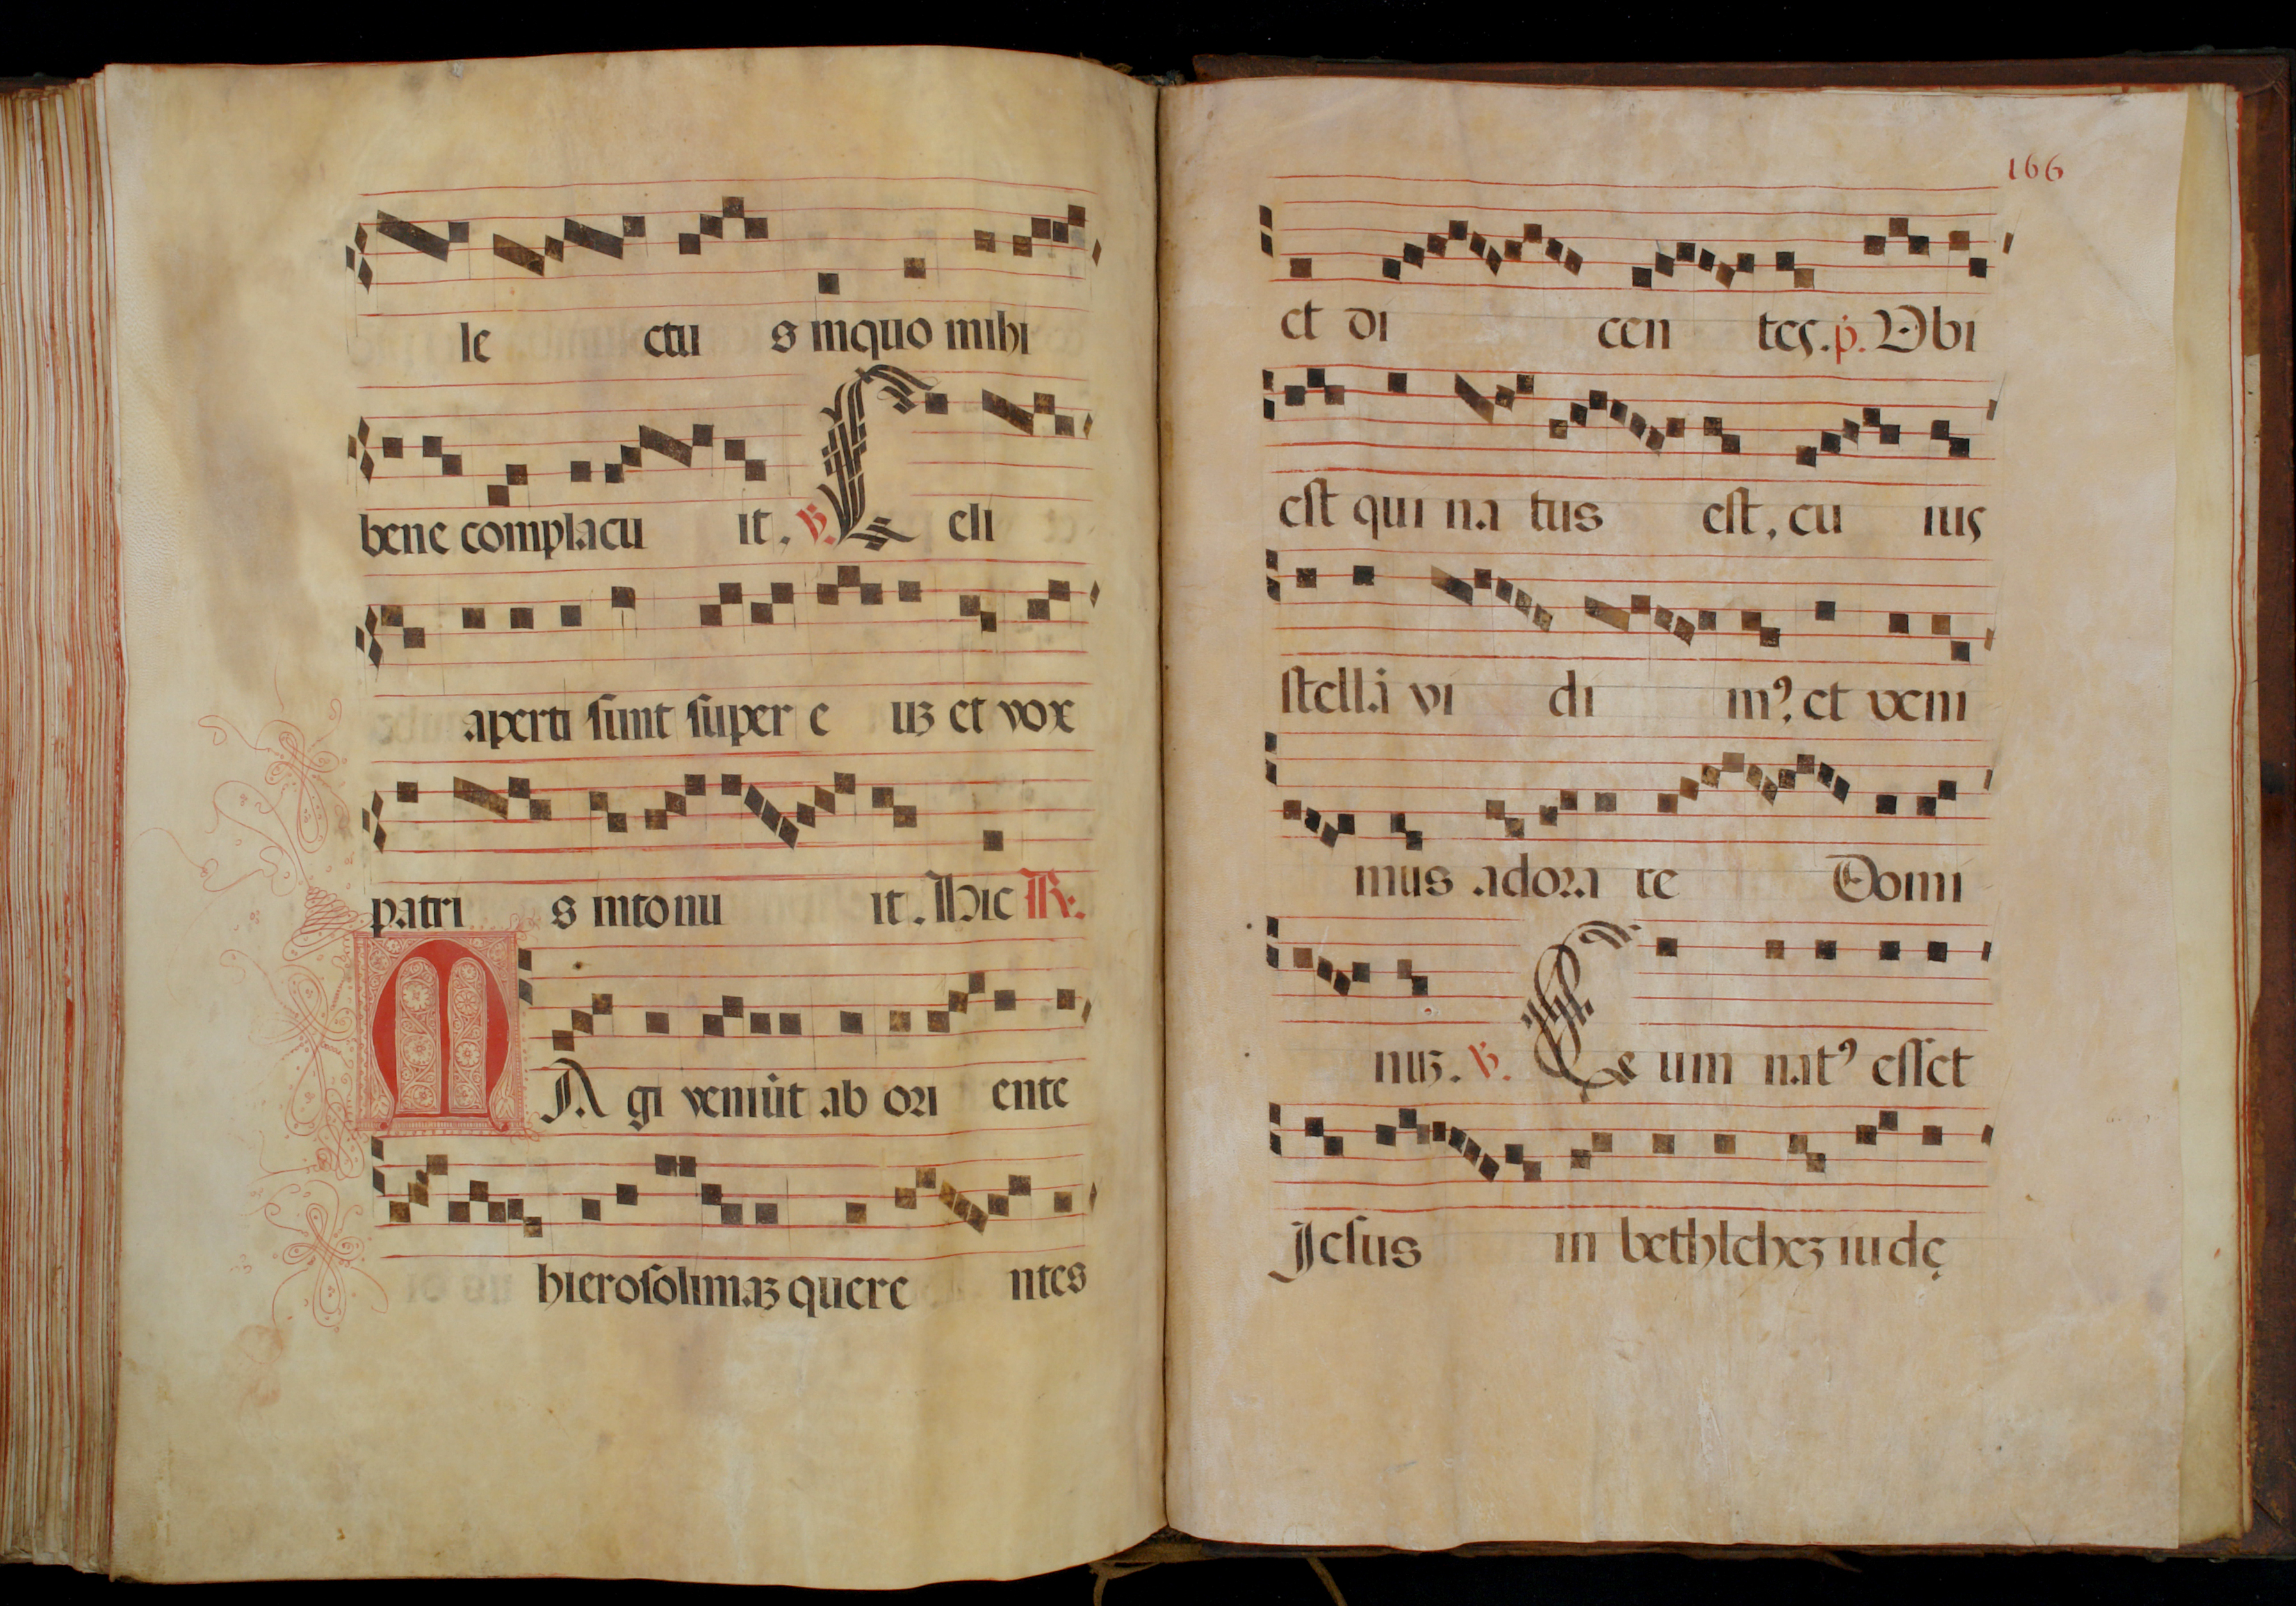 le ctu s inquo mihi
bene complacu it. ℣. Celi
aperti sunt super e uꝫ et vox
patri s intonu it. Hic ℟.
MA gi veniūt ab ori ente
hierosolimaꝫ quere ntes
166
et di cen tes. p̄. Ubi
est qui na tus est, cu ius
stellā vi di mꝰ, et veni
mus adora re Domi
nuꝫ. ℣. Cum natꝰ esset
Jesus in bethleheꝫ iudę